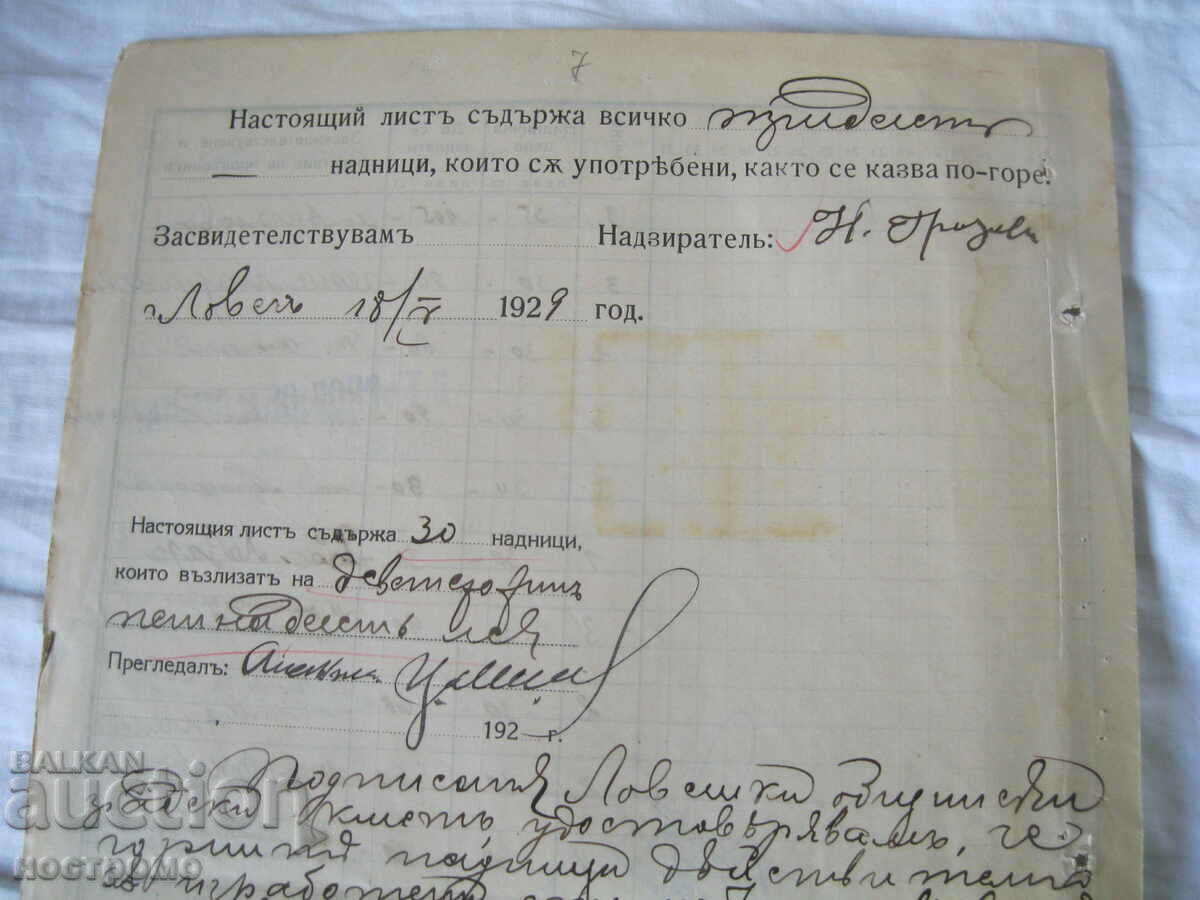 7
Настоящий листъ съдържа всичко
надници, които сѫ употрѣбени, както се казва по-горе.
Засвидетелствувамъ Надзиратель: Н. Грозевъ
г. Ловечъ 18/X 1929 год.
Настоящия листъ съдържа 30 надници,
които възлизатъ на деветстотинъ
петнадесеть лева
Прегледалъ:
192 г.
Подписания Ловешки общински
градски кметъ удостовѣрявамъ, че
горнитѣ надници действително
изработени
BALKAN
auction
ностромо